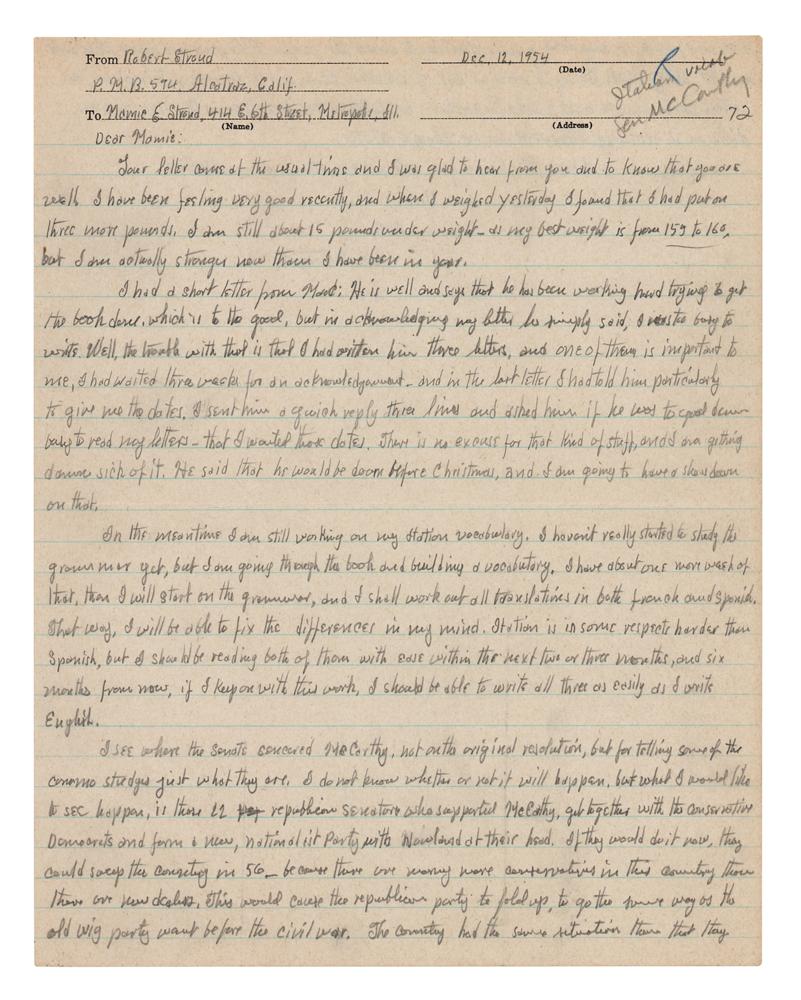 From Robert Stroud Dec, 12, 1954
(Date)
P.M.B. 594, Alcatraz, Calif.
Italian vocab
Sen. McCarthy
To Mamie E Stroud, 414 E. 6th Street, Metropolis, Ill. 72
(Name) (Address)
Dear Mamie:
Your letter came at the usual time and I was glad to hear from you and to know that you are
well. I have been feeling very good recently, and when I weighed yesterday I found that I had put on
three more pounds. I am still about 15 pounds under weight - as my best weight is from 159 to 160,
but I am actually stronger now than I have been in year.
I had a short letter from : He is well and says that he has been working hard trying to get
the book done, which is to the good, but in acknowledging my letter he simply said, I to busy to
write. Well, the trouble with that is that I had written him three letters, and one of them is important to
me, I had waited three weeks for an acknowledgement - and in the last letter I had told him particularly
to give me the dates. I sent him a quick reply three lines and asked him if he was to damn
busy to read my letters - that I wanted those dates. There is no excuse for that kind of stuff, and I am getting
damn sick of it. He said that he would be down before Christmas, and I am going to have a show down
on that.
In the meantime I am still working on my Italian vocabulary. I haven't really started to study the
grammar yet, but I am going through the book and building a vocabulary. I have about one more week of
that, then I will start on the grammar, and I shall work out all translations in both french and Spanish.
That way, I will be able to fix the differences in my mind. Italian is in some respects harder than
Spanish, but I should be reading both of them with ease within the next two or three months, and six
months from now, if I keep on with this work, I should be able to write all three as easily as I write
English.
I see where the Senate cencored McCarthy, not on the original resolution, but for telling some of the
just what they are. I do not know whether or not it will happen, but what I would like
to see happen, is those 22 republican senators who supported McCathy, get together with the conservative
Democrats and form a new, nationalist Party with Nowland at their head. If they would do it now, they
could sweep the country in 56 - because there are many more conservatives in this country than
there are new dealers. This would cause the republican party to fold up, to go the same way as the
old wig party want before the civil war. The country had the same situation then that they